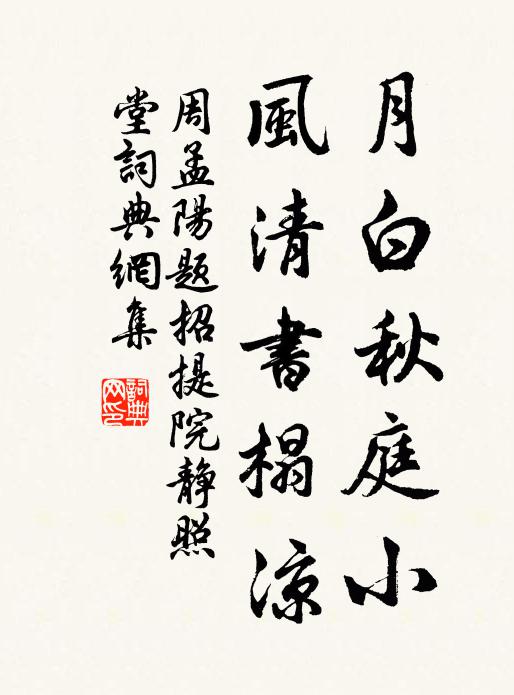 月白秋庭小
風清書榻凉
周孟陽题招提院静照
堂詞典網集
詞典
网印